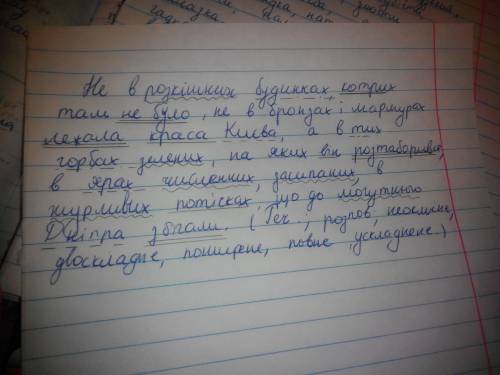 Не в розкішних будинках котрих
там не було, не в бронзах і мармурах
лежала краса Києва, а в тих
горбах зелених, на яких він розтаборився,
в ярах численних, засипаних, в
журливих потісках, що до могутнього
Дніпра збігали. (Реч; розпов, неоклична,
двоскладне, поширене, повне, ускладнене.)